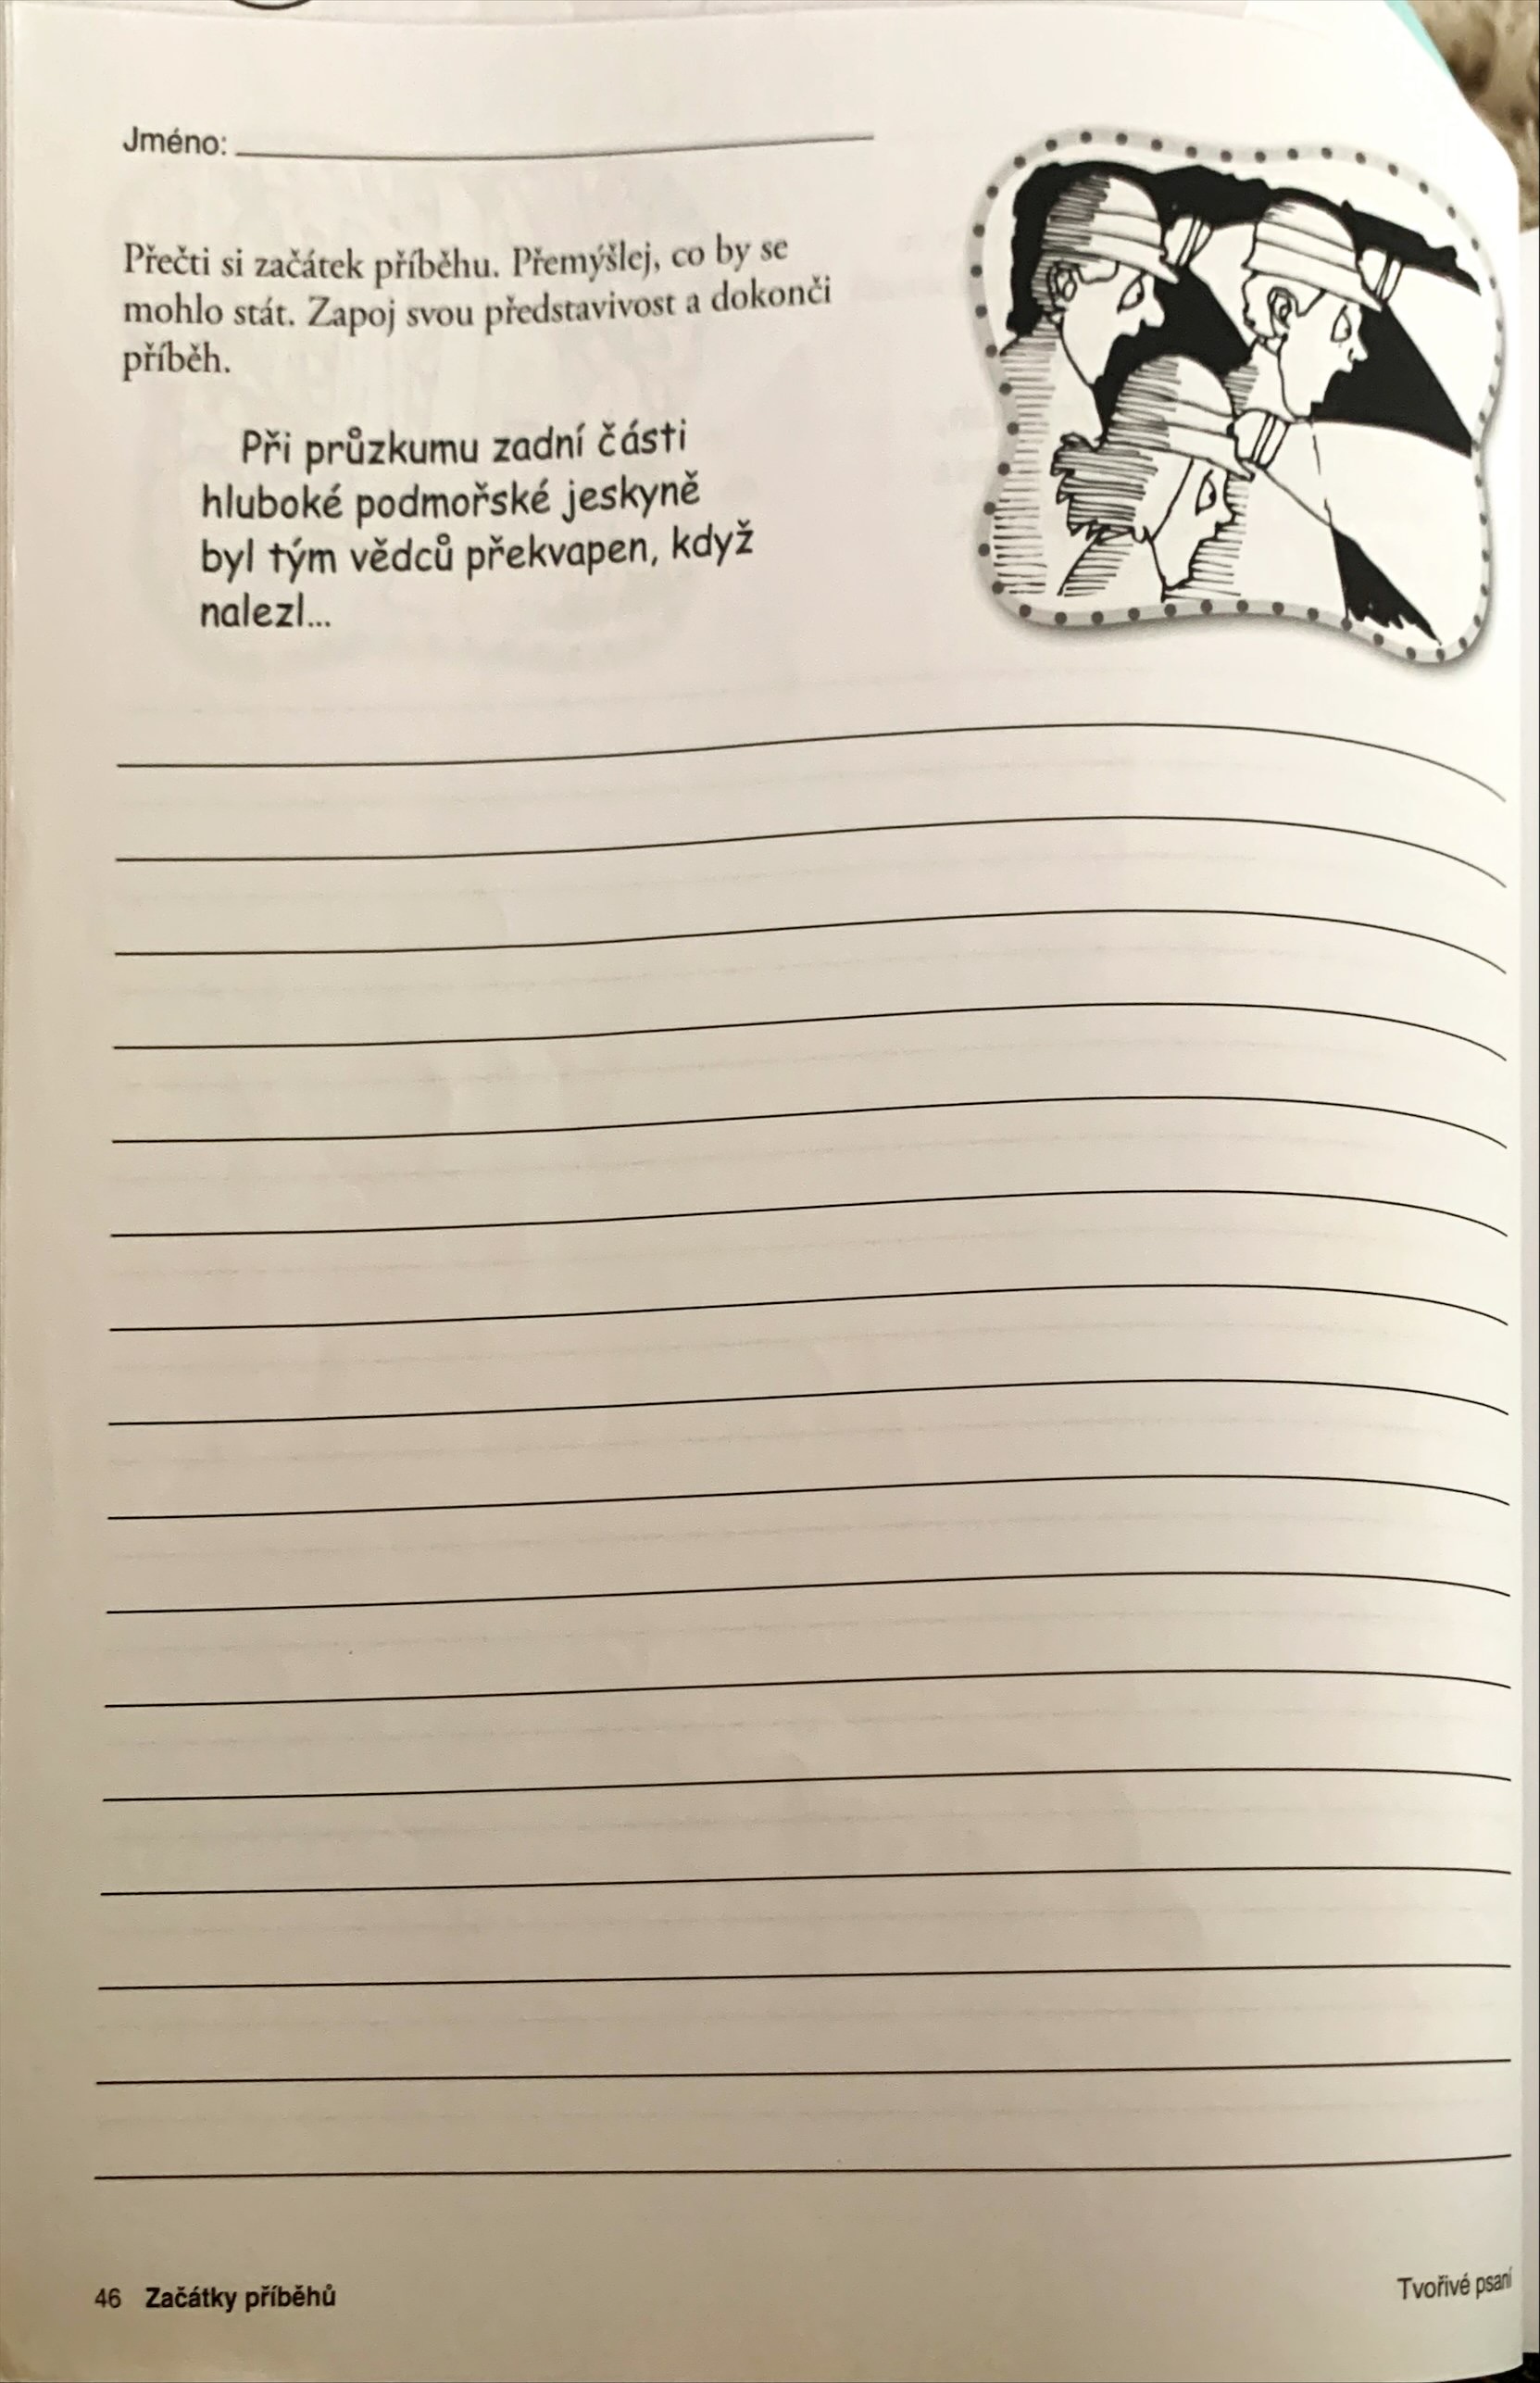 Jméno:
Přečti si začátek příběhu. Přemýšlej, co by se
mohlo stát. Zapoj svou představivost a dokonči
příběh.
Při průzkumu zadní části
hluboké podmořské jeskyně
byl tým vědců překvapen, když
nalezl...
46 Začátky příběhů
Tvořivé psaní